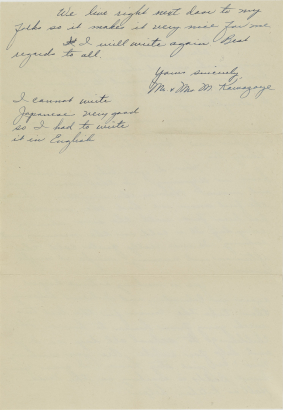 We live right next door to my
folks so it makes it very nice for me
I will write again Best
regards to all.
Yours sincerely,
Mr. & Mrs. M.
I cannot write
Japanese very good
so I had to write
it in English